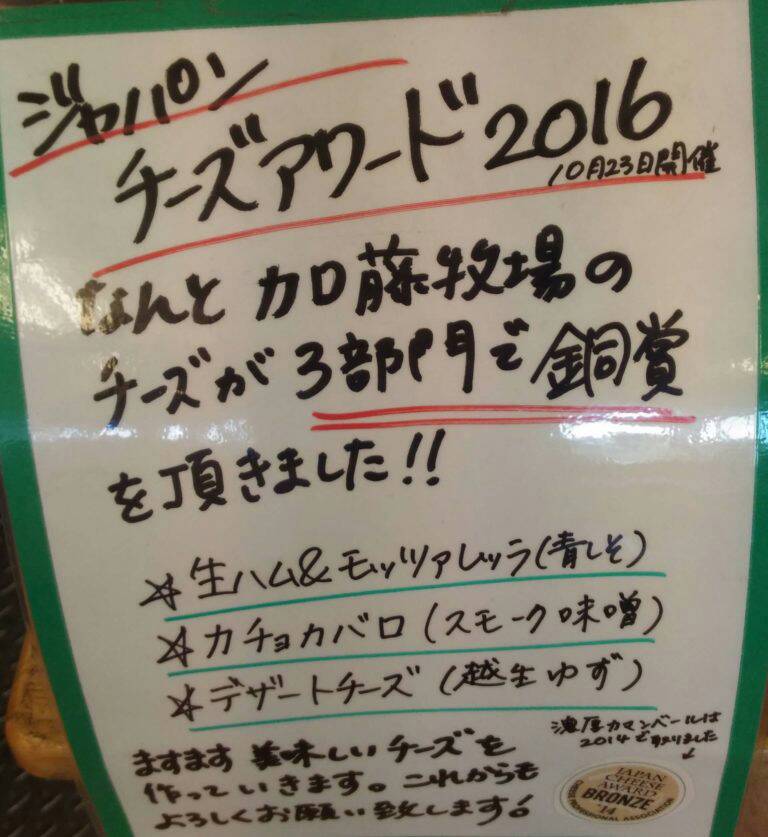 ジャパン
チーズアワード2016
10月23日開催
なんと加藤牧場の
チーズが3部門で銅賞
を頂きました!!
☆生ハム&モッツァレッラ(青しそ)
☆カチョカバロ(スモーク味噌)
☆デザートチーズ(越生ゆず)
濃厚カマンベールは
2014で取りました
↓
ますます美味しいチーズを
作っていきます。これからも
よろしくお願い致します!
JAPAN
CHEESE
AWARD
BRONZE
'14
PROFESSIONAL ASSOCIATION